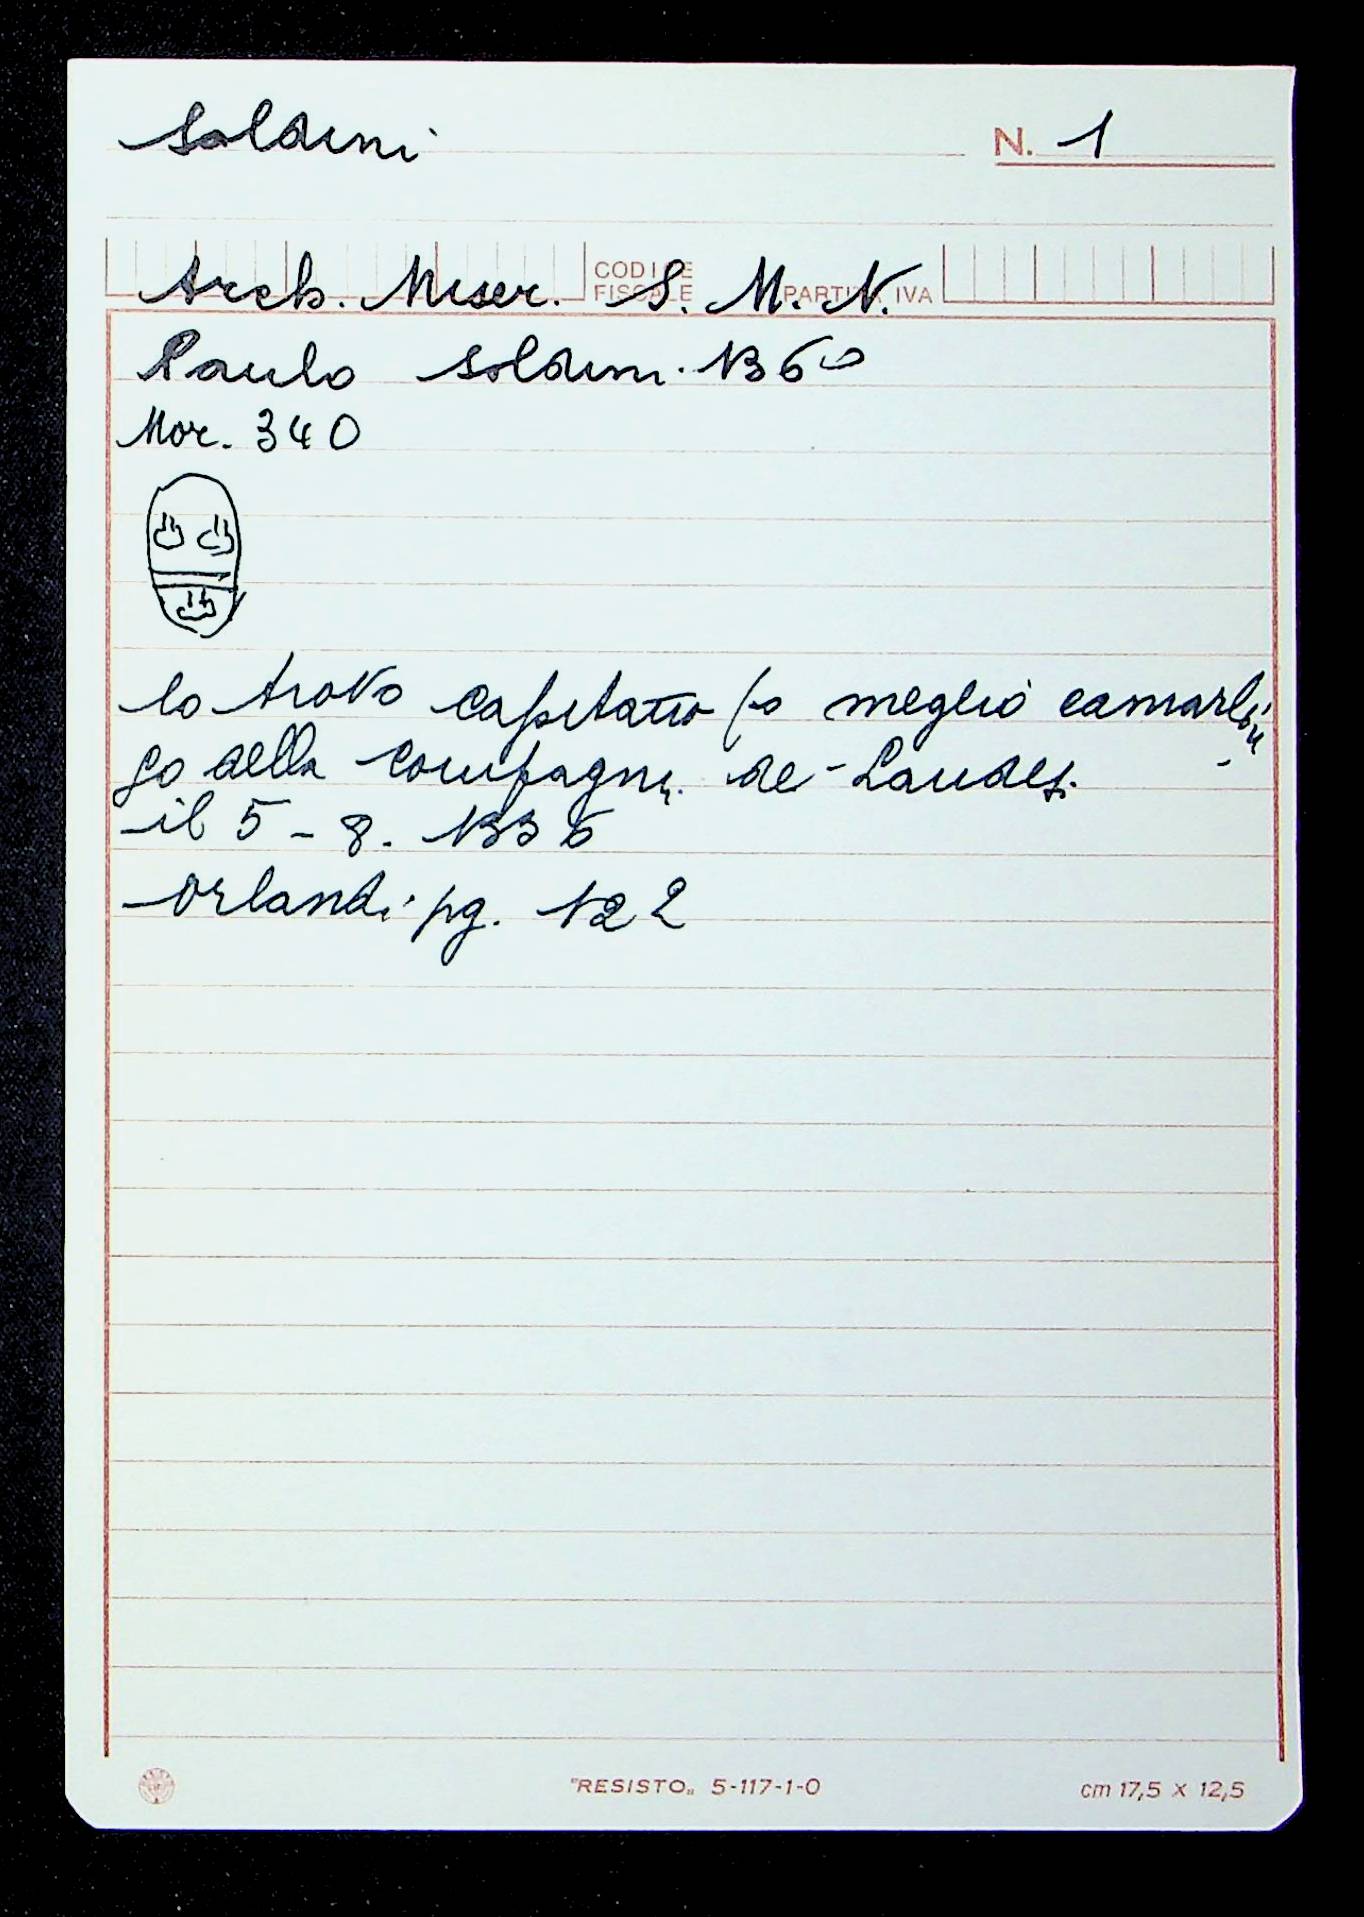 Soldini N. 1
CODICE FISCALE PARTITA IVA
Arch. Miser. S. M. N.
Paulo Soldini. 1360
Mor. 340
lo trovo capitano (o meglio camarlin
go della compagni. de Laudesi
il 5-8. 1336
Orlandi pg. 122
"RESISTO„ 5-117-1-0 cm 17,5 x 12,5